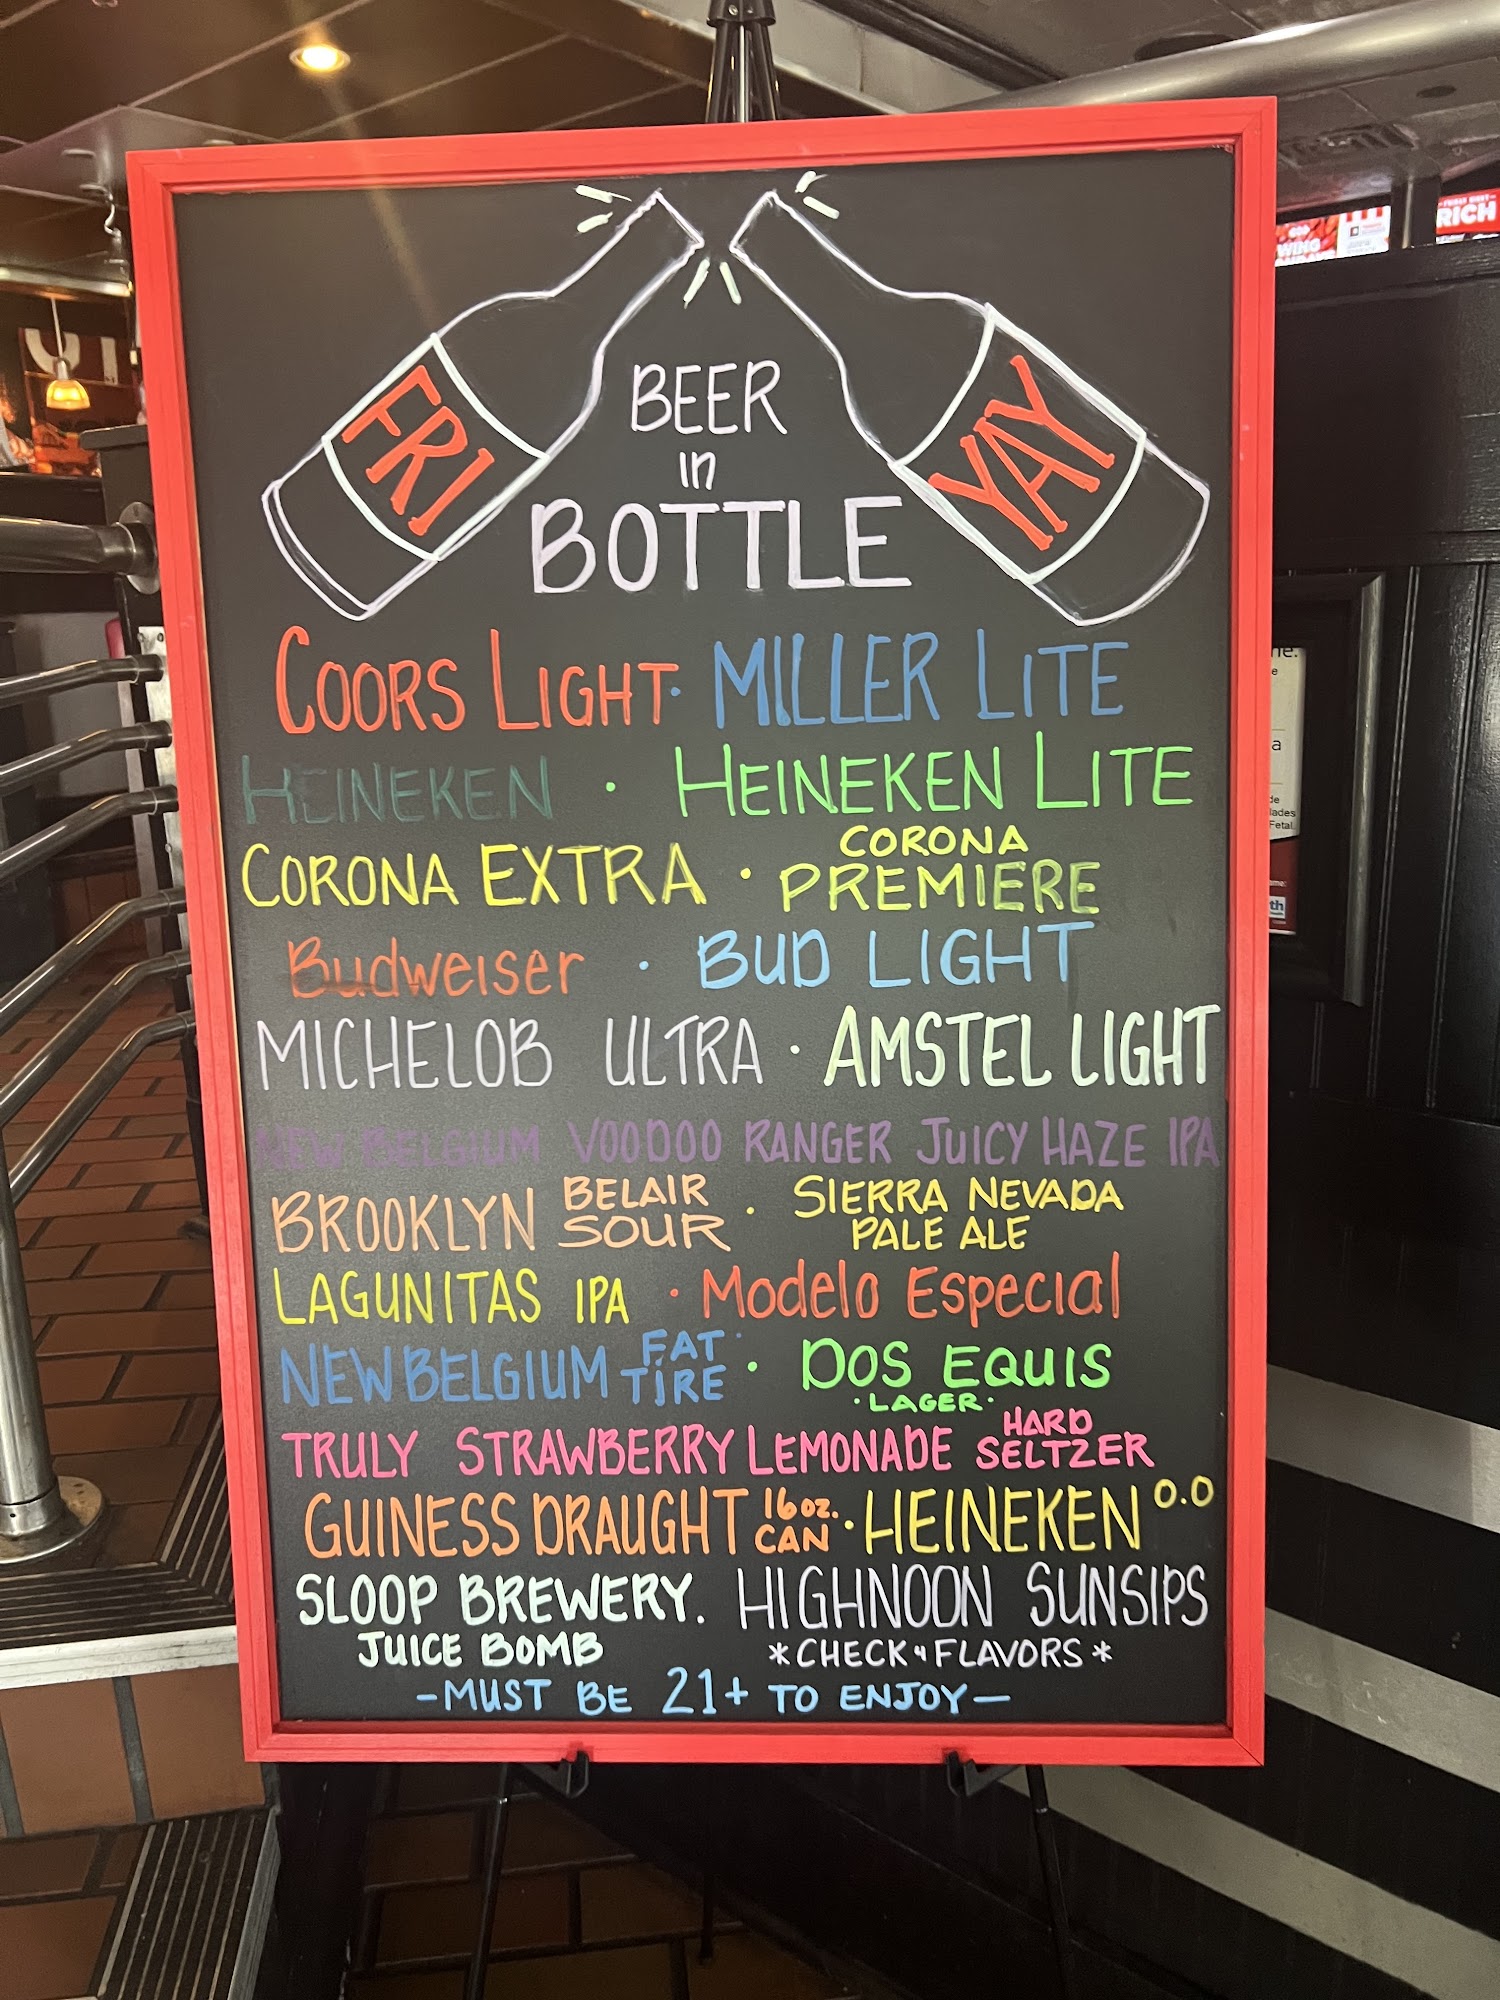 FRI
YAY
BEER
in
BOTTLE
COORS LIGHT · MILLER LITE
HEINEKEN · HEINEKEN LITE
CORONA EXTRA · CORONA PREMIERE
Budweiser · BUD LIGHT
MICHELOB ULTRA · AMSTEL LIGHT
NEW BELGIUM VOODOO RANGER JUICY HAZE IPA
BROOKLYN BELAIR SOUR · SIERRA NEVADA PALE ALE
LAGUNITAS IPA · Modelo Especial
NEW BELGIUM FAT TIRE · DOS EQUIS
· LAGER ·
TRULY STRAWBERRY LEMONADE HARD SELTZER
GUINESS DRAUGHT 16oz. CAN · HEINEKEN 0.0
SLOOP BREWERY. HIGHNOON SUNSIPS
JUICE BOMB *CHECK 4 FLAVORS*
-MUST BE 21+ TO ENJOY-
WING
RICH